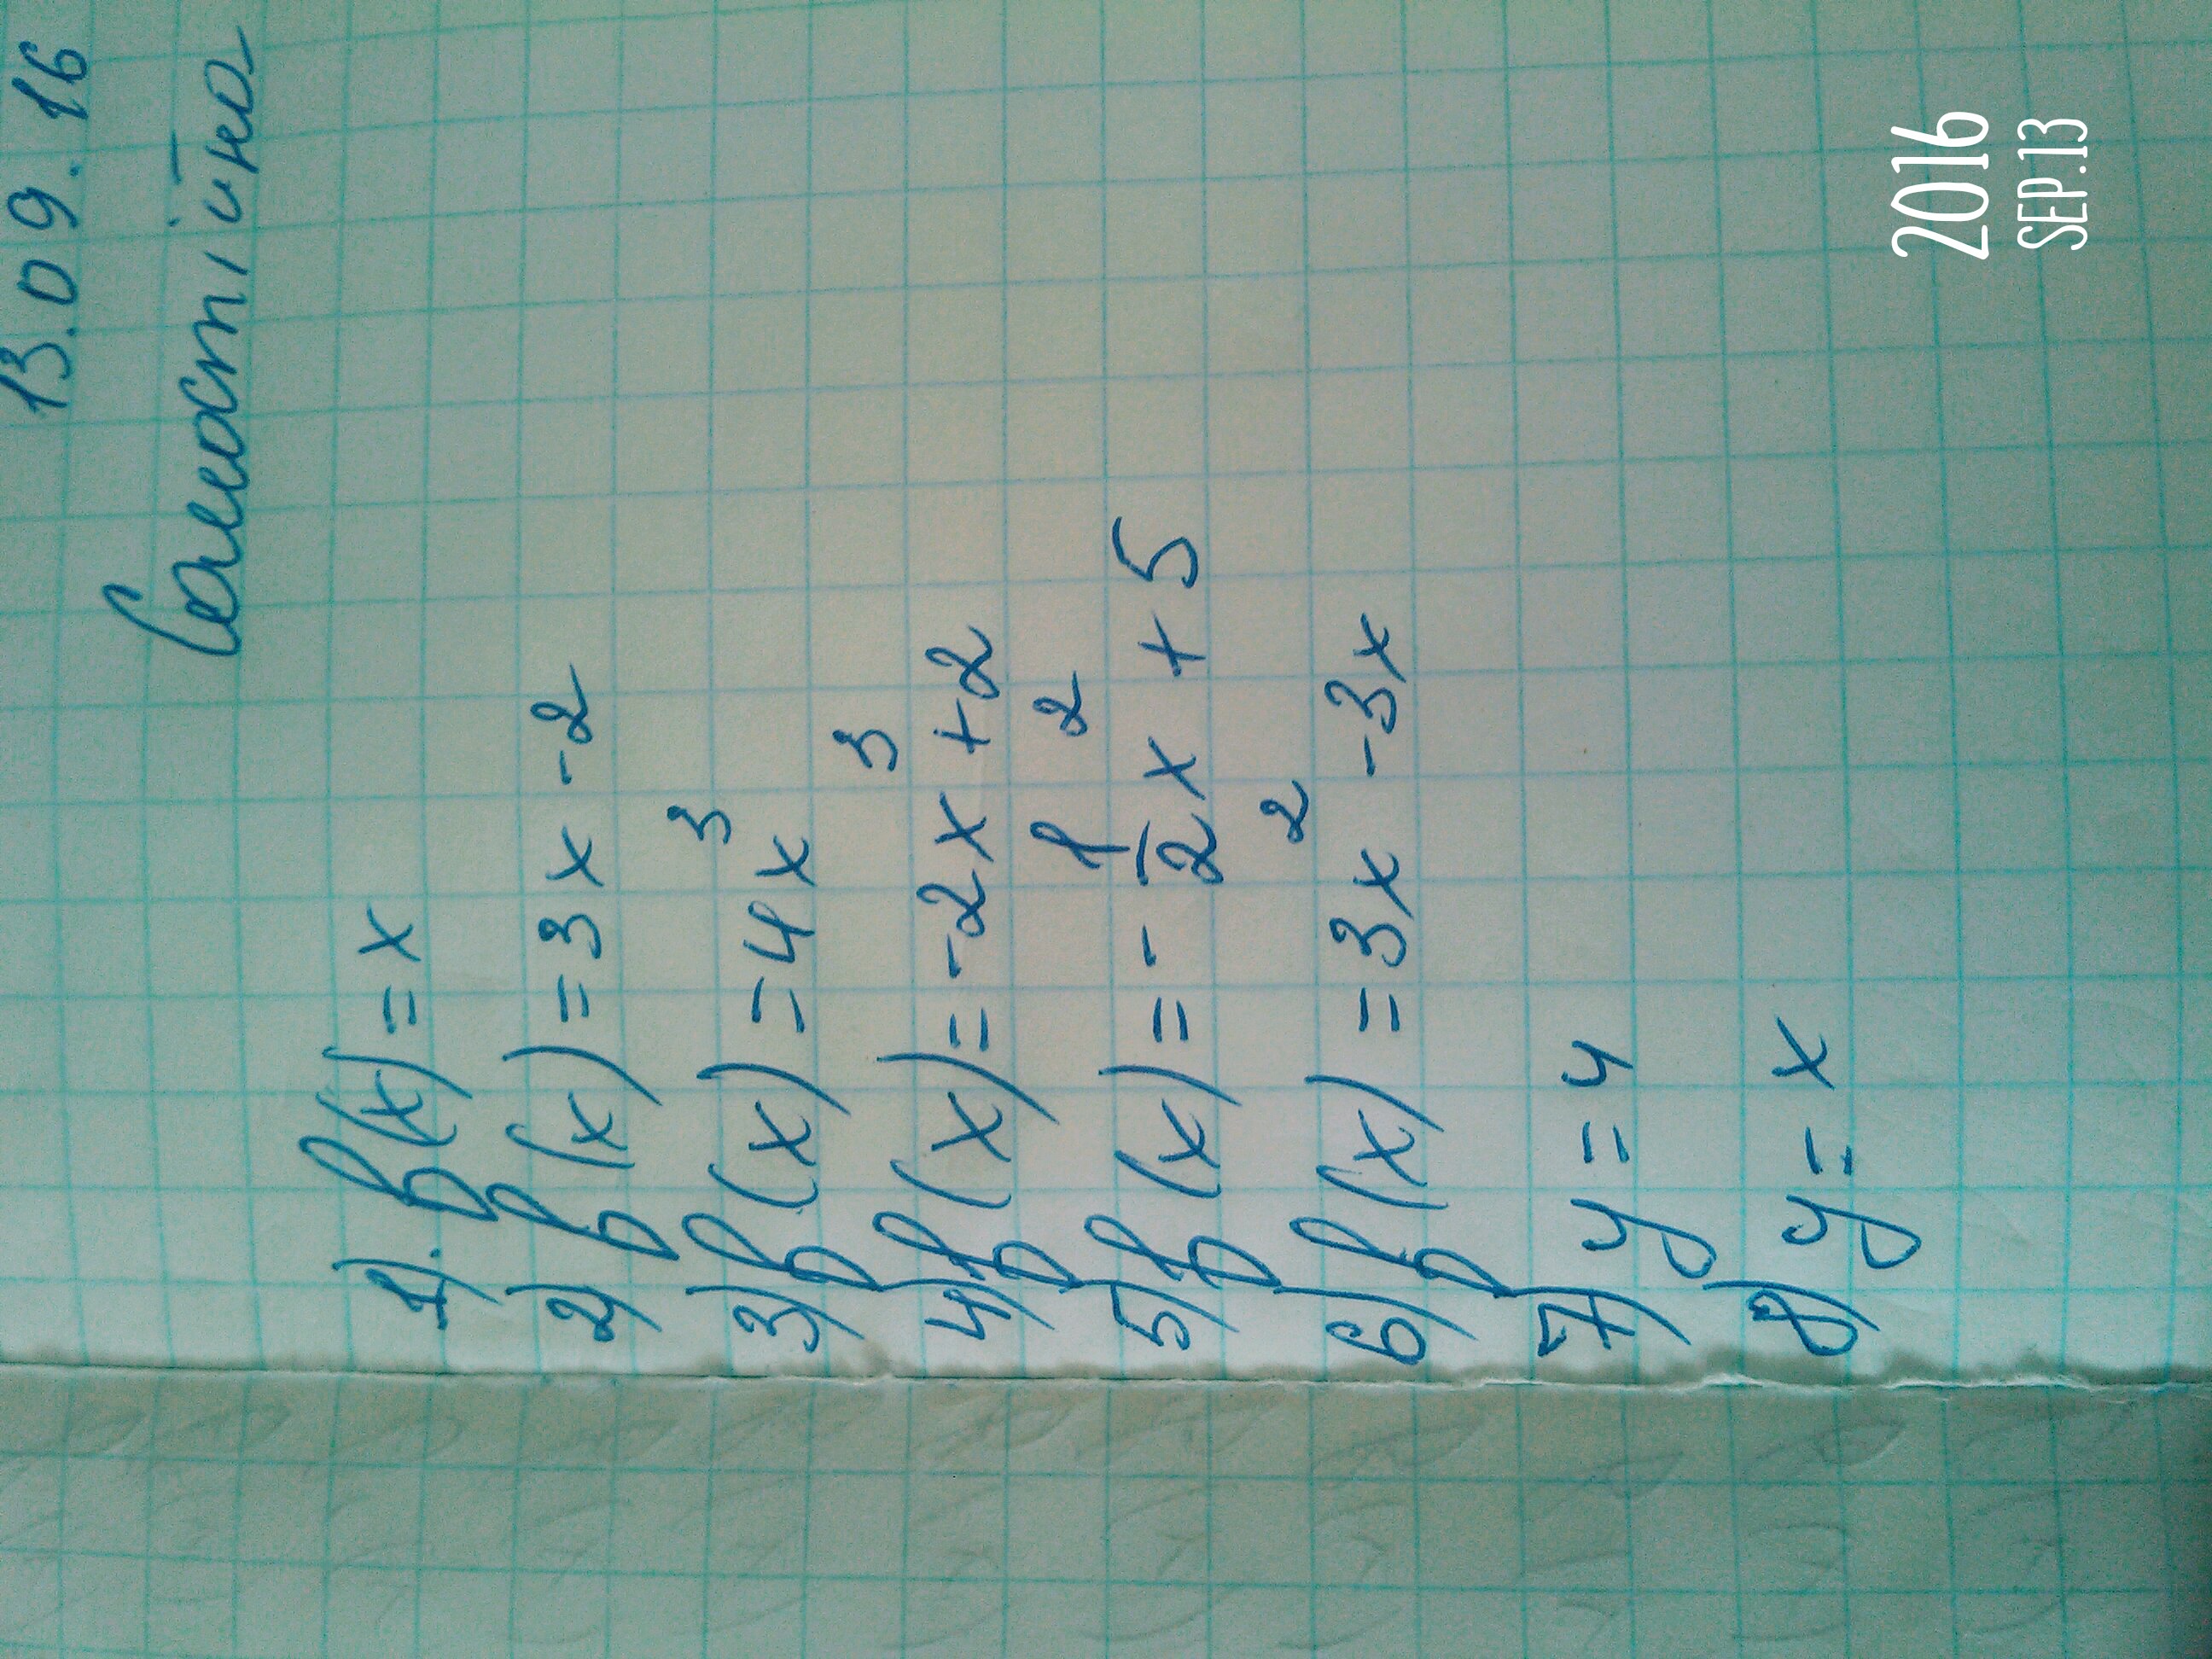 13.09.16
Самостійно
1). f(x)=x
2) f(x)=3x-2
3) f(x)=4x³
4) f(x)=-2x³+2
5) f(x)=-1/2x²+5
6) f(x)=3x²-3x
7) y=4
8) y=x
2016
SEP.13